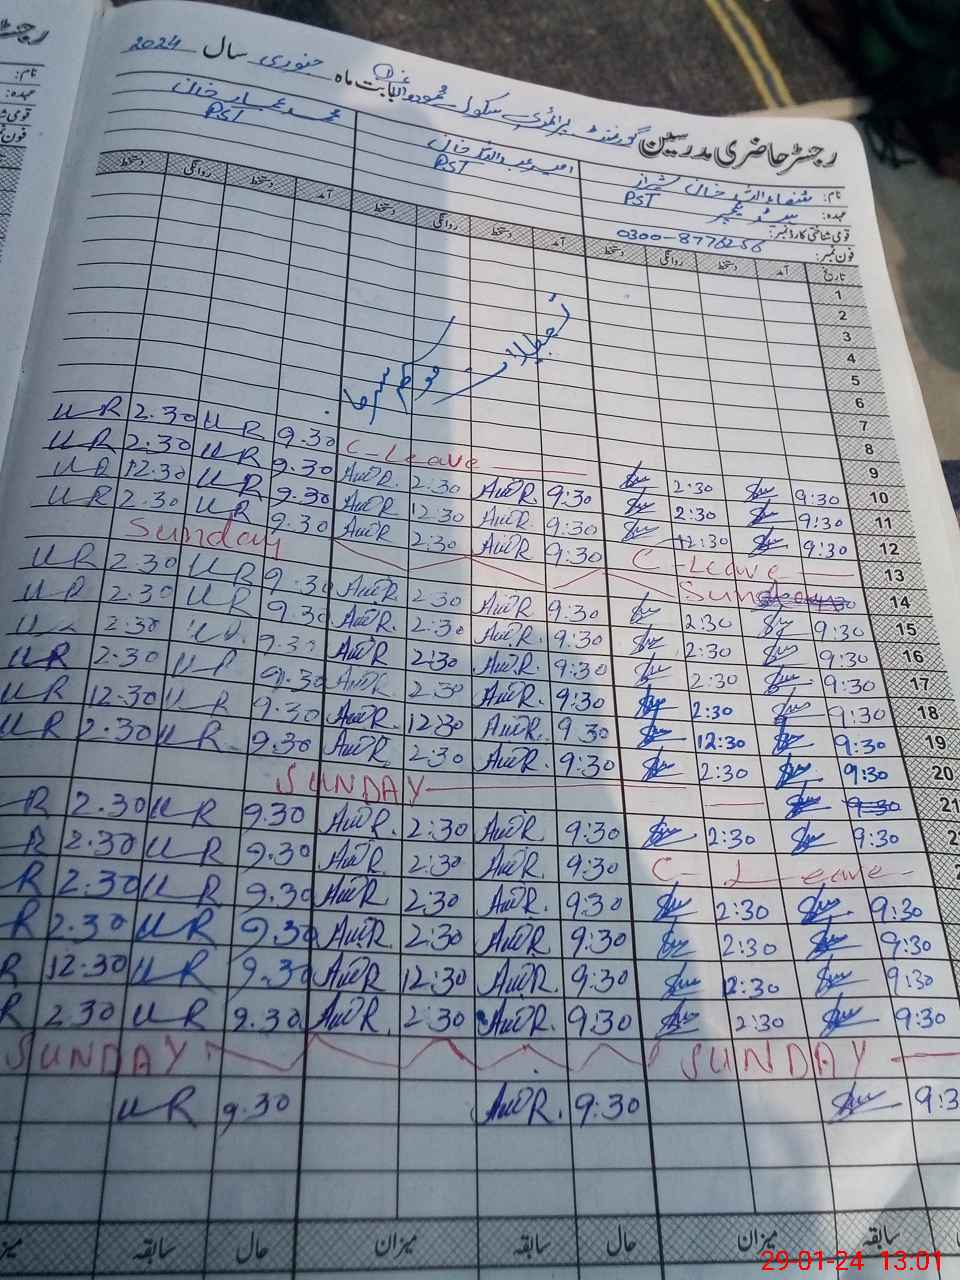 رجسٹر حاضری مدرسین گورنمنٹ پرائمری سکول بابت ماہ جنوری سال 2024
نام: شفاء اللہ خان
محمد عبار خان
عہدہ: PST
PST
PST
قومی شناختی کارڈ نمبر:
فون نمبر: 0300-8776256
تاریخ آمد دستخط روانگی دستخط آمد دستخط روانگی دستخط آمد دستخط روانگی دستخط
1
2
3
4
5
6
7
8
تعطیلات موسم سرما
9 9:30 2:30 C-Leave 9.30 UR 2.30 UR
10 9:30 2:30 9:30 AwR. 2:30 AwR. 9.30 UR 2.30 UR
11 9:30 12:30 9:30 AwR. 12:30 AwR 9.30 UR 12.30 UR
12 C-Leave 9:30 AwR 2:30 AwR 9.30 UR 2.30 UR
13 Sunday Sunday
14 9:30 2:30 9:30 AwR. 2:30 AwR. 9.30 UR 2.30 UR
15 9:30 2:30 9:30 AwR. 2:30 AwR 9.30 UR 2.30 UR
16 9:30 2:30 9:30 AwR. 2:30 AwR 9.30 2.30
17 9:30 2:30 9:30 AwR. 2:30 AwR 9.30 UR 2.30 UR
18 9:30 12:30 9:30 AwR. 12:30 AwR. 9.30 UR 12.30 UR
19 9:30 2:30 9:30 AwR. 2:30 AwR. 9.30 UR 2.30 UR
20 9:30 SUNDAY
21 9:30 2:30 9:30 AwR. 2:30 AwR. 9.30 UR 2.30 R
C-Leave 9:30 AwR. 2:30 AwR. 9.30 UR 2.30 R
9:30 2:30 9:30 AwR. 2:30 AwR. 9.30 UR 2.30 R
9:30 2:30 9:30 AwR. 2:30 AwR. 9.30 UR 2.30 R
9:30 12:30 9:30 AwR. 12:30 AwR 9.30 UR 12.30 R
9:30 2:30 9:30 AwR. 2:30 AwR. 9.30 UR 2.30 R
SUNDAY SUNDAY
9:3 9:30 AwR. 9.30 UR
سابقہ میزان حال سابقہ میزان حال سابقہ میز
29-01-24 13.01